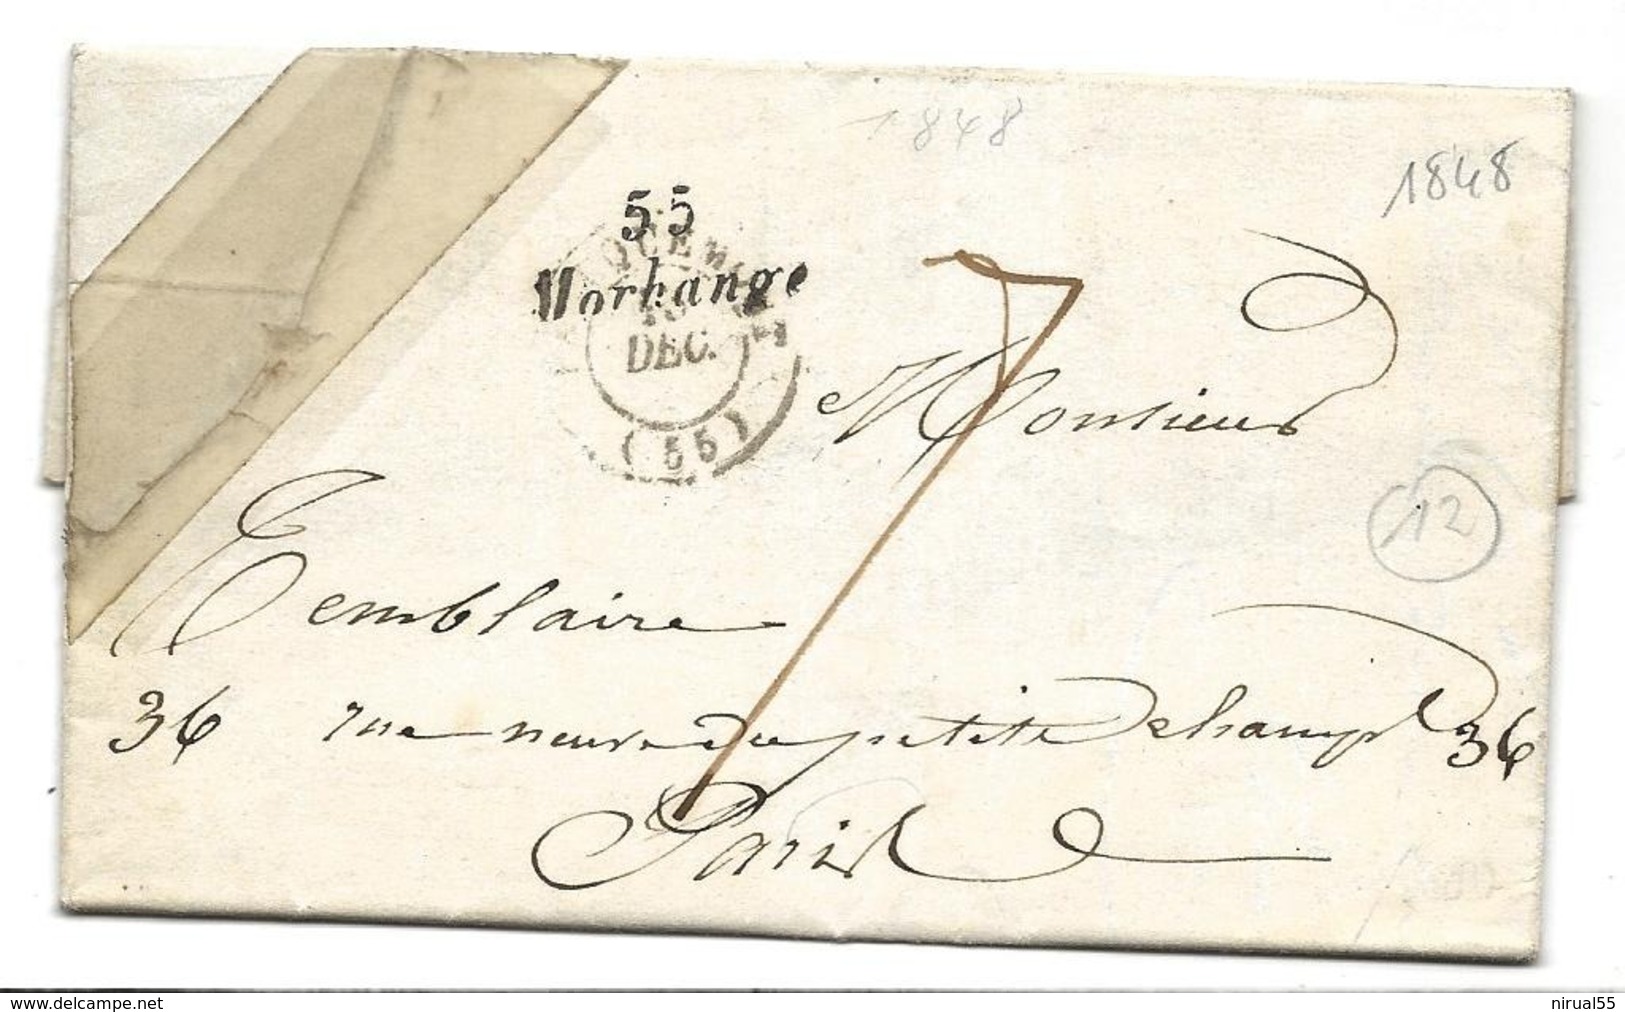 1848
1848
55
Morhange
DEC.
(55)
Monsieur
Temblaire
36 rue neuve du petits champs 36
Paris
12
www.delcampe.net
nirual55